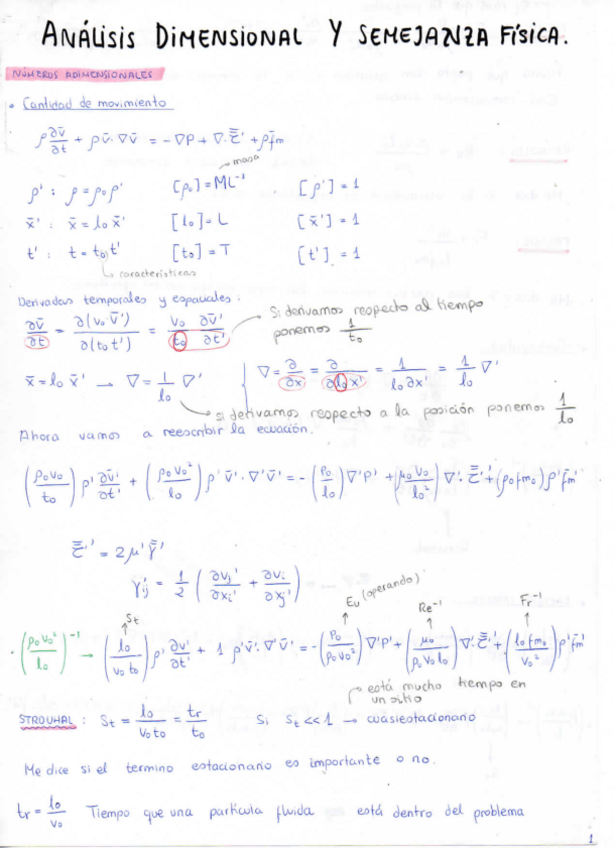 ANÁLISIS DIMENSIONAL Y SEMEJANZA FÍSICA.
NÚMEROS ADIMENSIONALES
• Cantidad de movimiento
ρ ∂v̄/∂t + ρ v̄·∇v̄ = -∇P + ∇·τ̿' + ρf̄m
masa
ρ' : ρ = ρ₀ρ' [ρ₀] = ML⁻³ [ρ'] = 1
x̄' : x̄ = l₀ x̄' [l₀] = L [x̄'] = 1
t' : t = t₀ t' [t₀] = T [t'] = 1
características
Derivadas temporales y espaciales:
∂v̄/∂t = ∂(v₀ v̄')/∂(t₀ t') = v₀/t₀ ∂v̄'/∂t' → Si derivamos respecto al tiempo ponemos 1/t₀
x̄ = l₀ x̄' → ∇ = 1/l₀ ∇' { ∇ = ∂/∂x = ∂/∂l₀x' = 1/l₀∂x' = 1/l₀ ∇'
si derivamos respecto a la posición ponemos 1/l₀
Ahora vamos a reescribir la ecuación.
(ρ₀v₀/t₀) ρ' ∂v̄'/∂t' + (ρ₀v₀²/l₀) ρ' v̄'·∇'v̄' = -(P₀/l₀) ∇'P' + (μ₀ v₀/l₀²) ∇'·τ̿' + (ρ₀fm₀) ρ'f̄m'
τ̿' = 2μ'γ̿'
γ'ij = 1/2 (∂vj'/∂xi' + ∂vi/∂xj')
St Eu (operando) Re⁻¹ Fr⁻¹
• (ρ₀v₀²/l₀)⁻¹ → (l₀/v₀t₀) ρ' ∂v'/∂t' + 1 ρ'v̄'·∇'v̄' = -(P₀/ρ₀v₀²) ∇'P' + (μ₀/ρ₀v₀l₀) ∇'·τ̿' + (l₀fm₀/v₀²) ρ'f̄m'
está mucho tiempo en un sitio
STROUHAL : St = l₀/v₀t₀ = tr/t₀ Si St << 1 → cuasiestacionario
Me dice si el termino estacionario es importante o no.
tr = l₀/v₀ Tiempo que una partícula fluida está dentro del problema
1